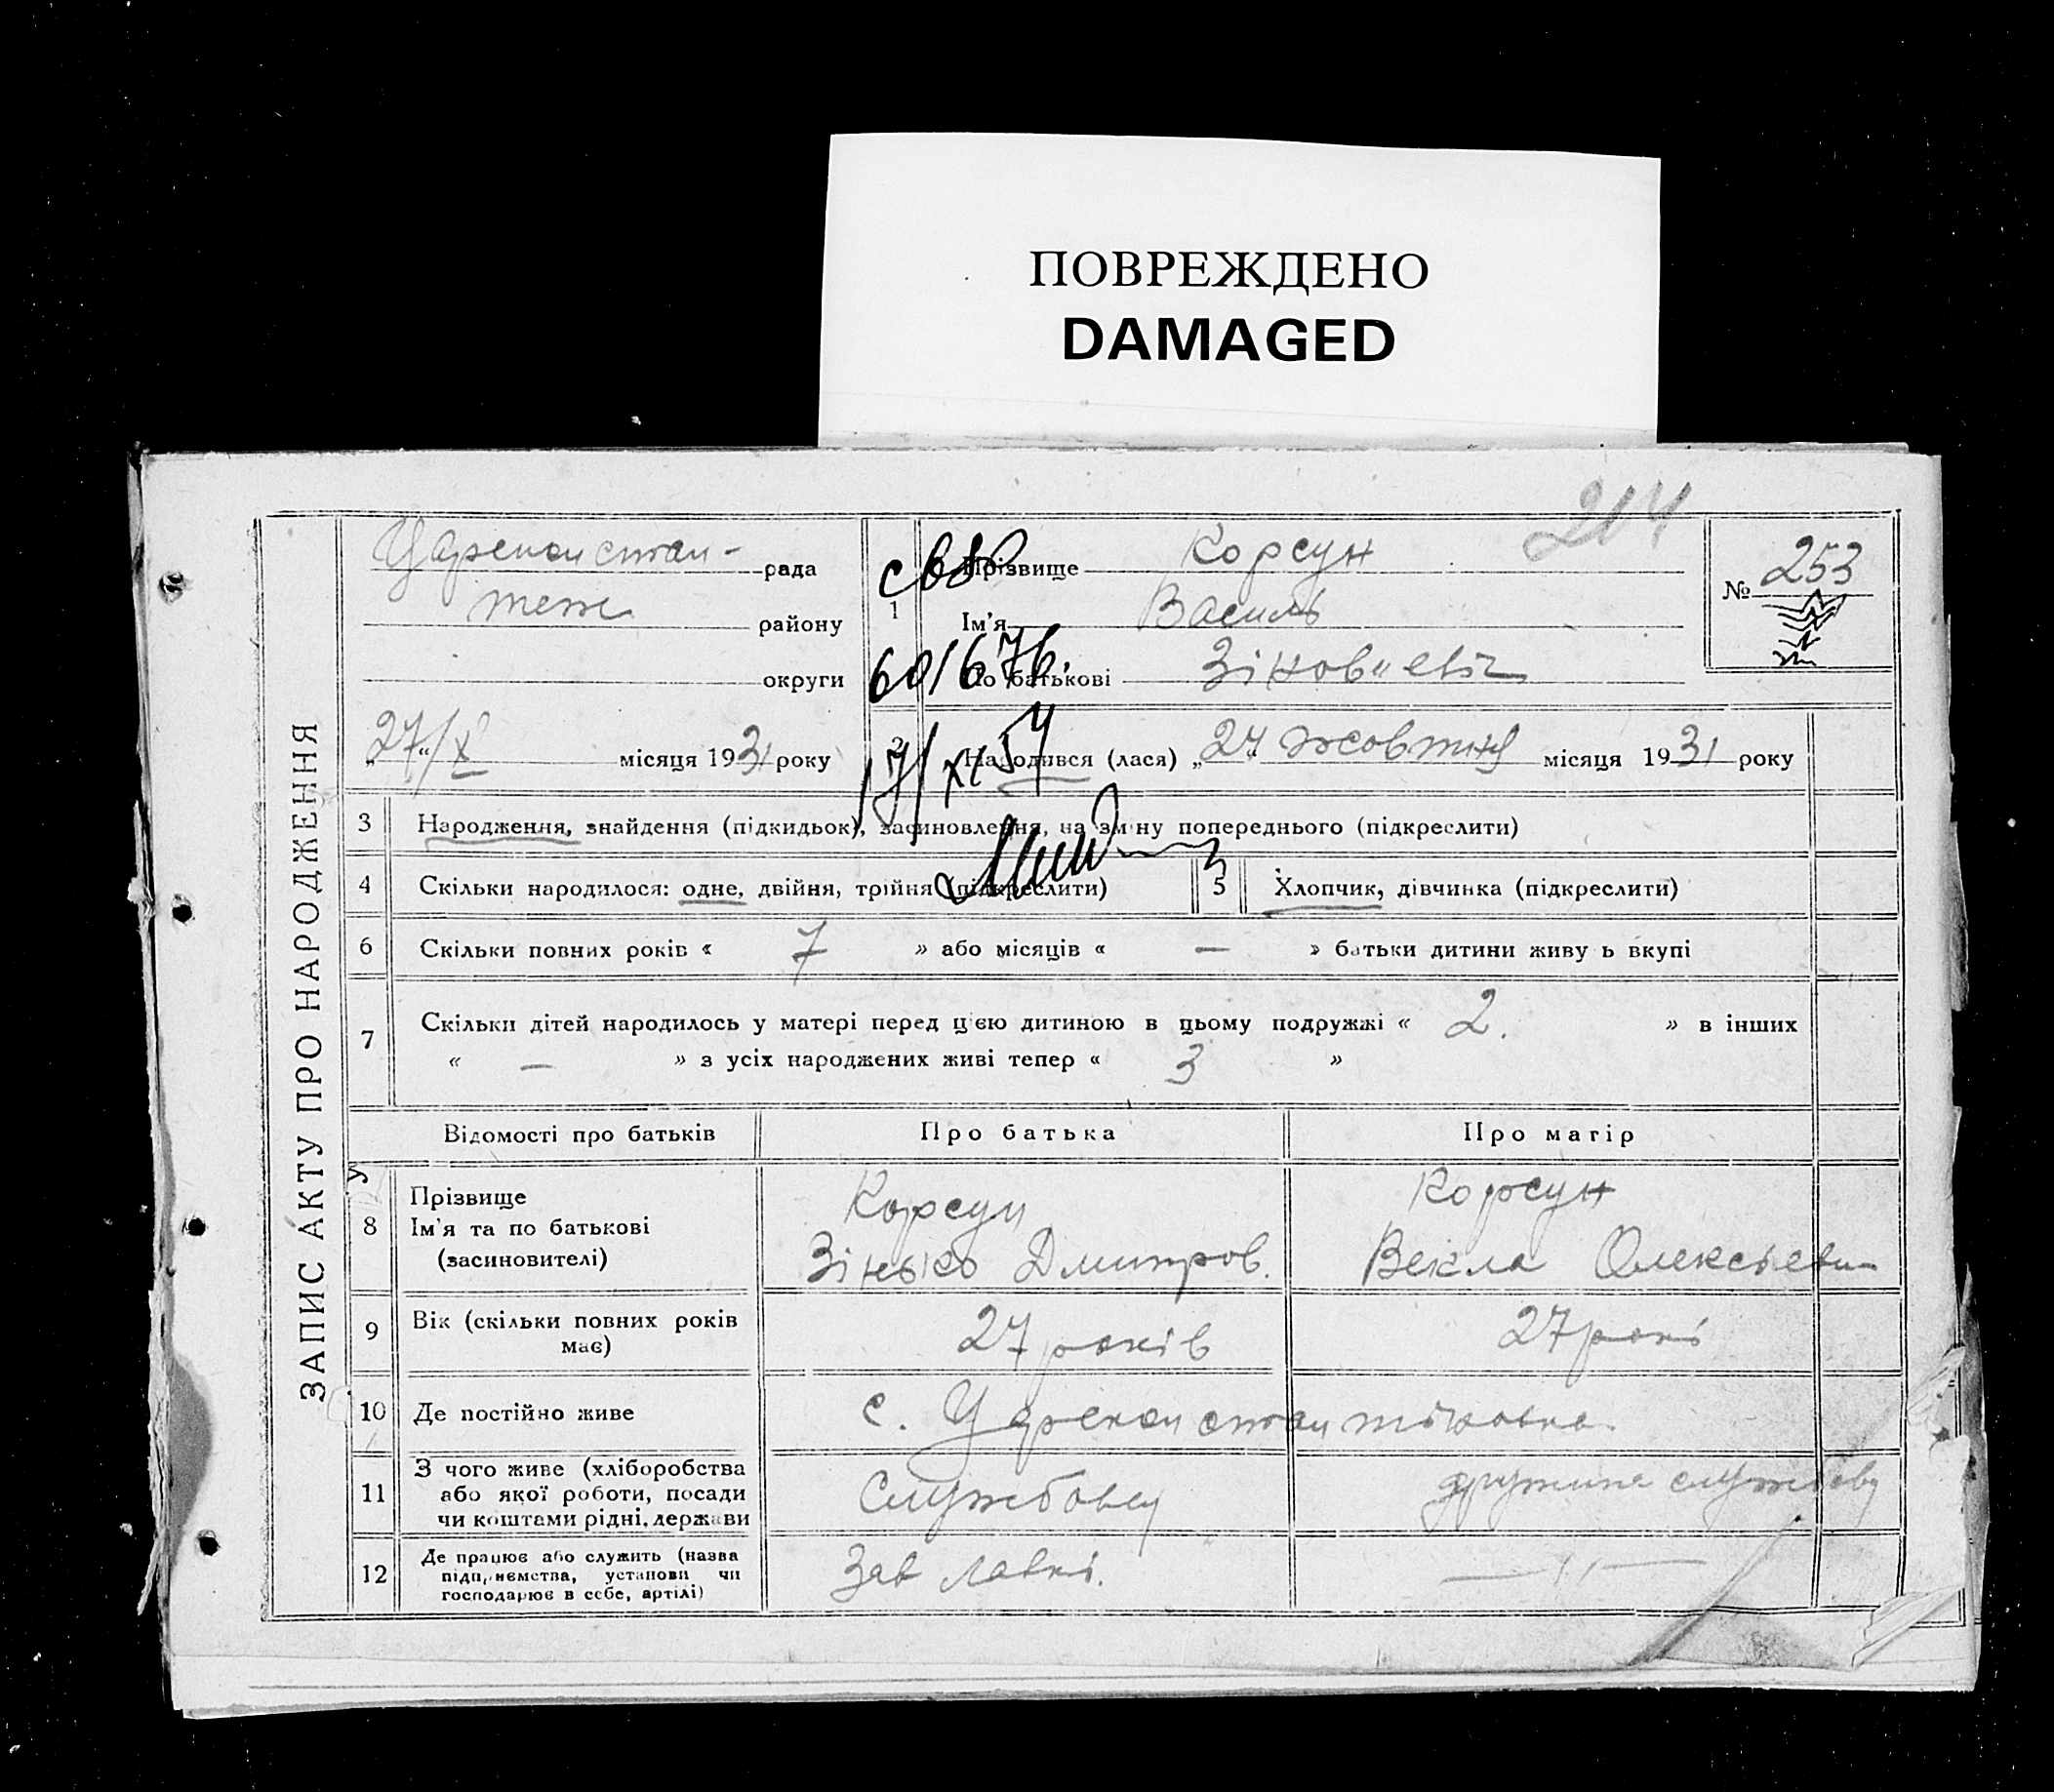 ПОВРЕЖДЕНО
DAMAGED
214
ЗАПИС АКТУ ПРО НАРОДЖЕННЯ
рада
теж району
округи
„27“/X місяця 1931 року
1
Прізвище Корсун
Ім'я Василь
По батькові Зіновиевіч
№ 253
601676
17/XI 54
2 Народився (лася) „24“ жовтня місяця 1931 року
3 Народження, знайдення (підкидьок), засиновлення, на зміну попереднього (підкреслити)
4 Скільки народилося: одне, двійня, трійня (підкреслити)
5 Хлопчик, дівчинка (підкреслити)
6 Скільки повних років « 7 » або місяців « — » батьки дитини живу ь вкупі
7 Скільки дітей народилось у матері перед цією дитиною в цьому подружжі « 2. » в інших
« — » з усіх народжених живі тепер « 3 »
Відомості про батьків Про батька Про матір
8 Прізвище
Ім'я та по батькові
(засиновителі)
Корсун
Зінько Дмитров.
Корсун
Векла Олексіевн
9 Вік (скільки повних років
має)
27 років
27 рокі
10 Де постійно живе
с.
11 З чого живе (хліборобства
або якої роботи, посади
чи коштами рідні, держави
Службовец
дружина службовц
12 Де працює або служить (назва
підприємства, установи чи
господарює в себе, артілі)
Зав лавкі.
— ,, —